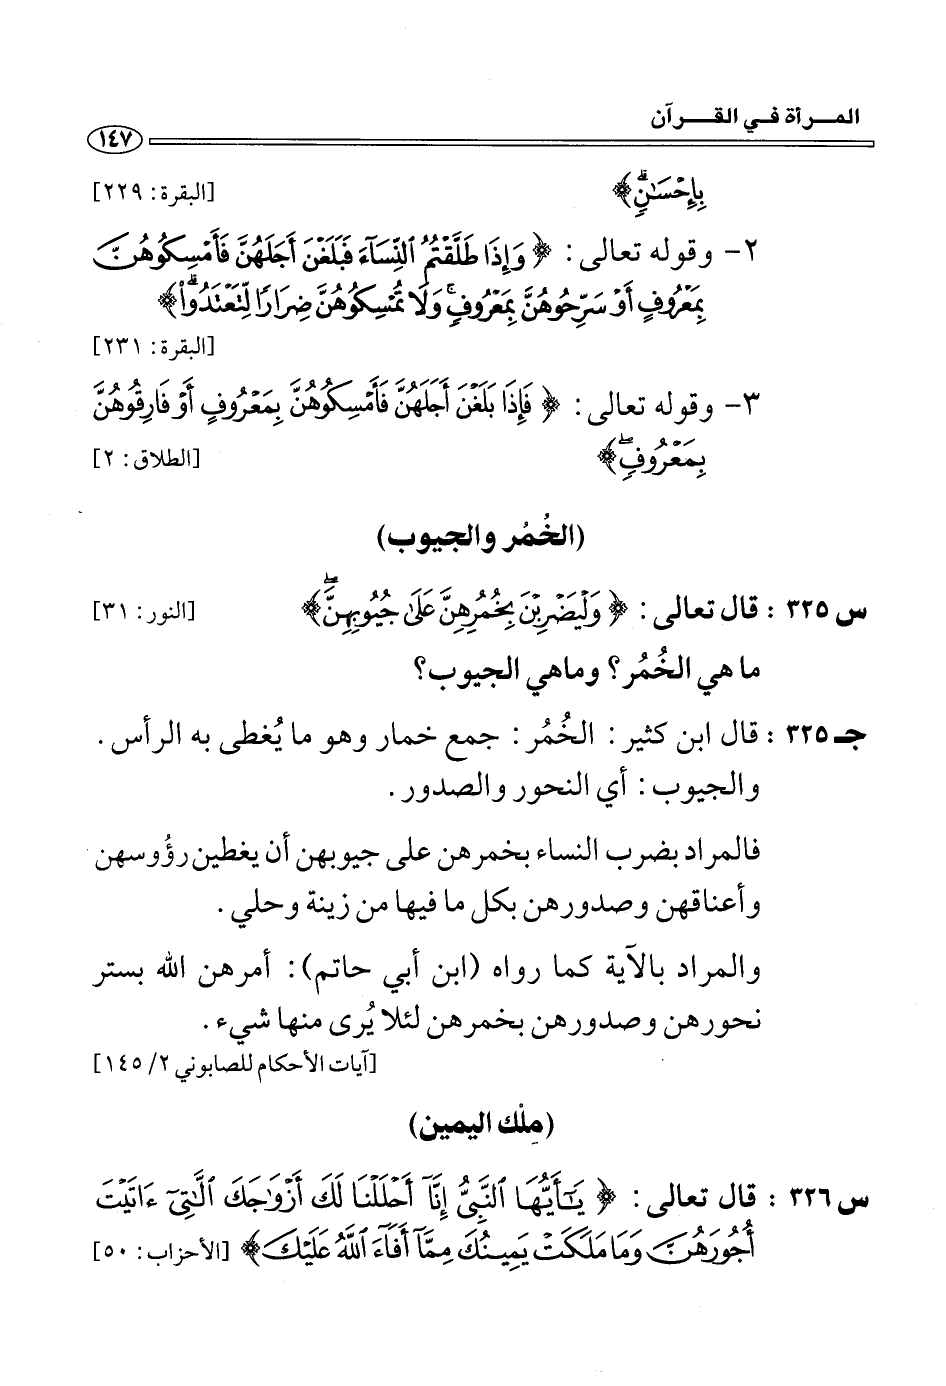 المـــرأة فـي القـــرآن
١٤٧
بِإِحْسَٰنٍۗ ﴾ [البقرة: ٢٢٩]
٢- وقوله تعالى: ﴿ وَإِذَا طَلَّقْتُمُ ٱلنِّسَآءَ فَبَلَغْنَ أَجَلَهُنَّ فَأَمْسِكُوهُنَّ
بِمَعْرُوفٍ أَوْ سَرِّحُوهُنَّ بِمَعْرُوفٍۚ وَلَا تُمْسِكُوهُنَّ ضِرَارًا لِّتَعْتَدُواْۗ ﴾
[البقرة: ٢٣١]
٣- وقوله تعالى: ﴿ فَإِذَا بَلَغْنَ أَجَلَهُنَّ فَأَمْسِكُوهُنَّ بِمَعْرُوفٍ أَوْ فَارِقُوهُنَّ
بِمَعْرُوفٍۖ ﴾ [الطلاق: ٢]
(الخُمُر والجيوب)
س ٣٢٥ : قال تعالى: ﴿ وَلْيَضْرِبْنَ بِخُمُرِهِنَّ عَلَىٰ جُيُوبِهِنَّۖ ﴾ [النور: ٣١]
ما هي الخُمُر؟ وماهي الجيوب؟
جـ ٣٢٥ : قال ابن كثير: الخُمُر: جمع خمار وهو ما يُغطى به الرأس.
والجيوب: أي النحور والصدور.
فالمراد بضرب النساء بخمرهن على جيوبهن أن يغطين رؤُوسهن
وأعناقهن وصدورهن بكل ما فيها من زينة وحلي.
والمراد بالآية كما رواه (ابن أبي حاتم): أمرهن الله بستر
نحورهن وصدورهن بخمرهن لئلا يُرى منها شيء.
[آيات الأحكام للصابوني ٢/ ١٤٥]
(مِلْك اليمين)
س ٣٢٦ : قال تعالى: ﴿ يَٰٓأَيُّهَا ٱلنَّبِيُّ إِنَّآ أَحْلَلْنَا لَكَ أَزْوَٰجَكَ ٱلَّٰتِيٓ ءَاتَيْتَ
أُجُورَهُنَّ وَمَا مَلَكَتْ يَمِينُكَ مِمَّآ أَفَآءَ ٱللَّهُ عَلَيْكَ ﴾ [الأحزاب: ٥٠]